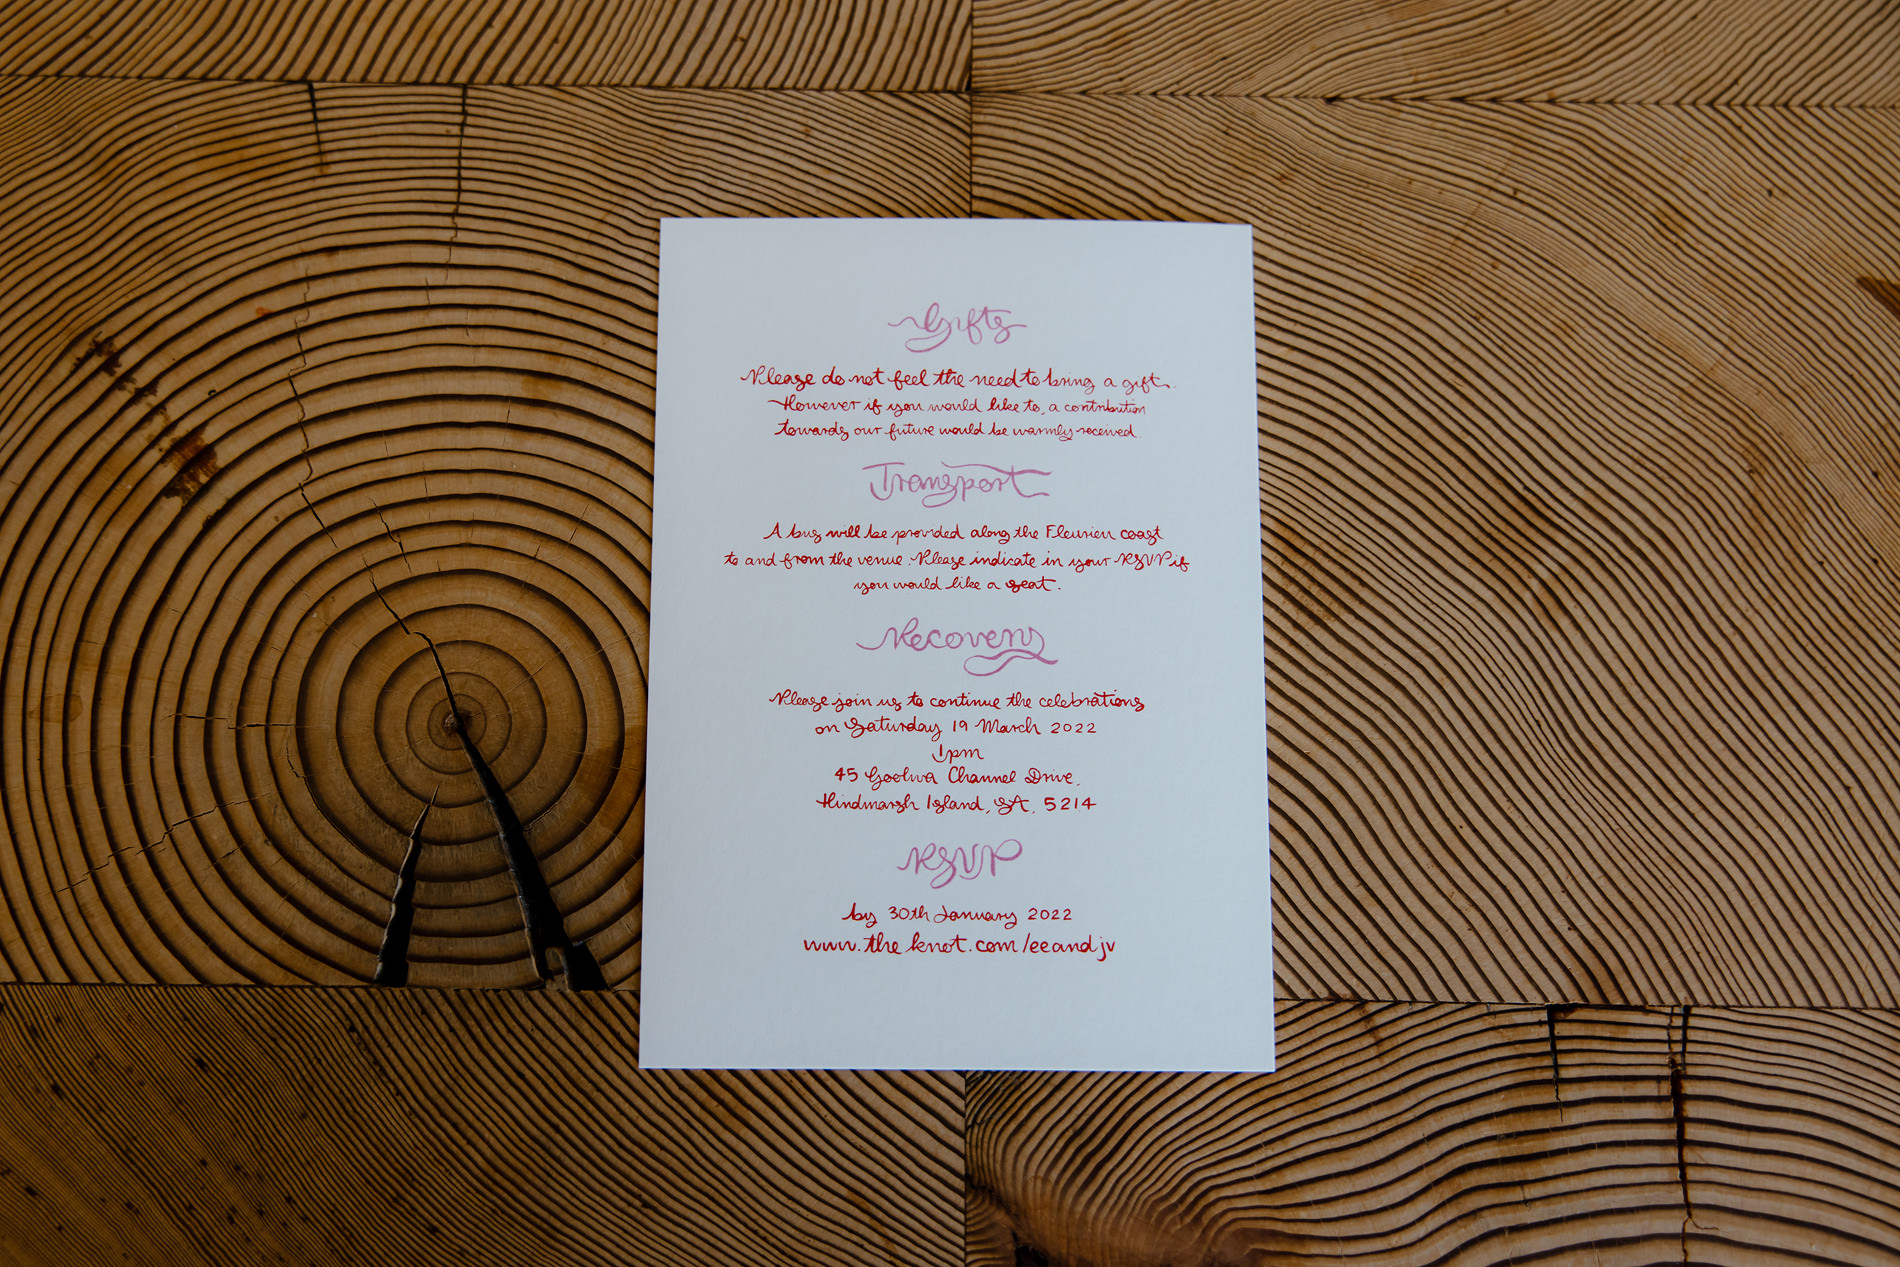 Gifts
Please do not feel the need to bring a gift.
However if you would like to, a contribution
towards our future would be warmly received.
Transport
A bus will be provided along the Fleurieu coast
to and from the venue. Please indicate in your RSVP if
you would like a seat.
Recovery
Please join us to continue the celebrations
on Saturday 19 March 2022
1pm
45 Goolwa Channel Drive,
Hindmarsh Island, SA, 5214
RSVP
by 30th January 2022
www.theknot.com/eeandjv